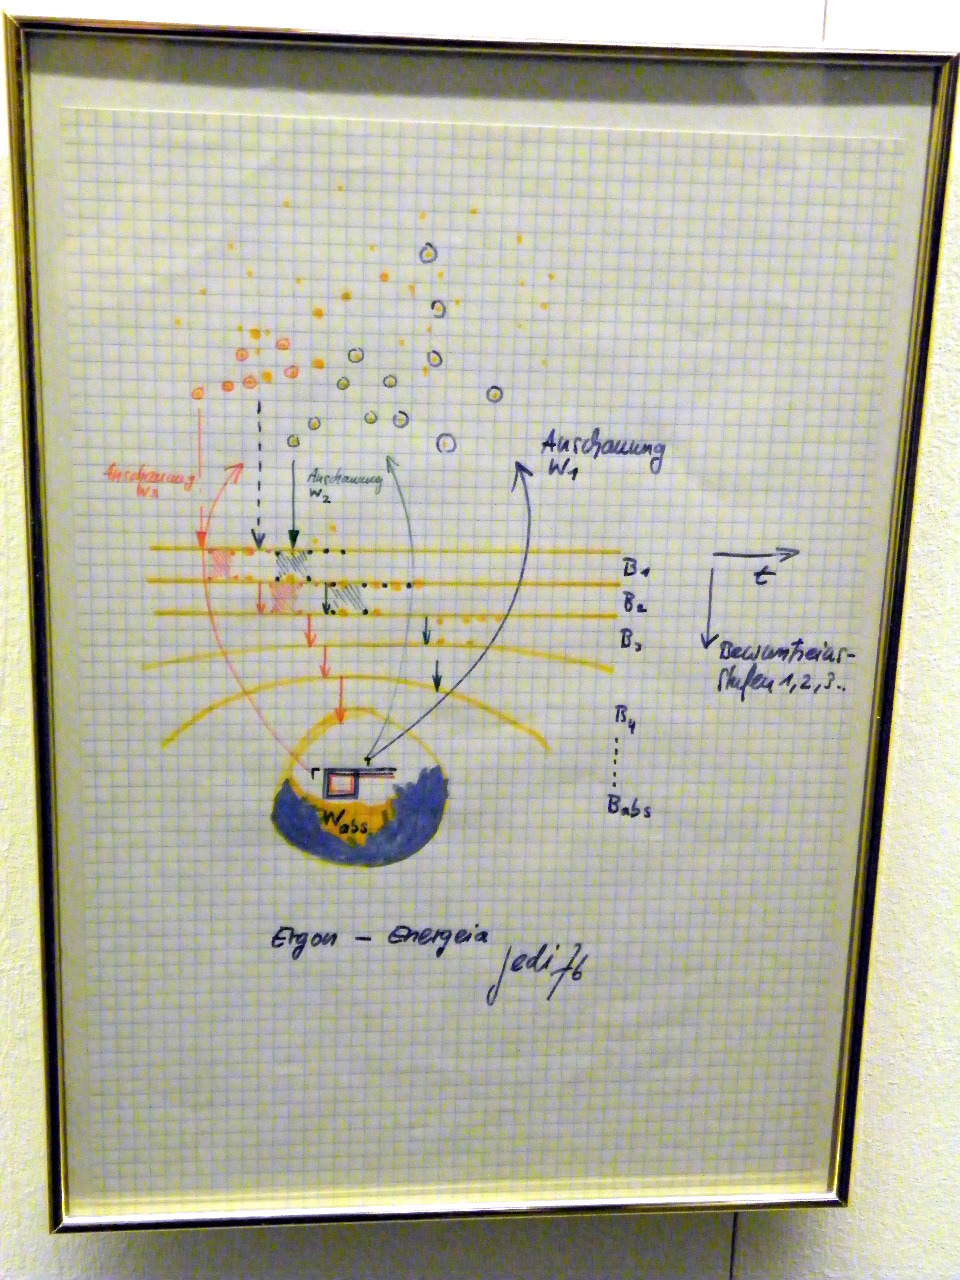 Anschauung
W1
Anschauung
W3
Anschauung
W2
B1
t
B2
B3
Bewusstseins-
stufen 1, 2, 3..
B4
Babs
Wabs
Ergon – Energeia
jedi 76